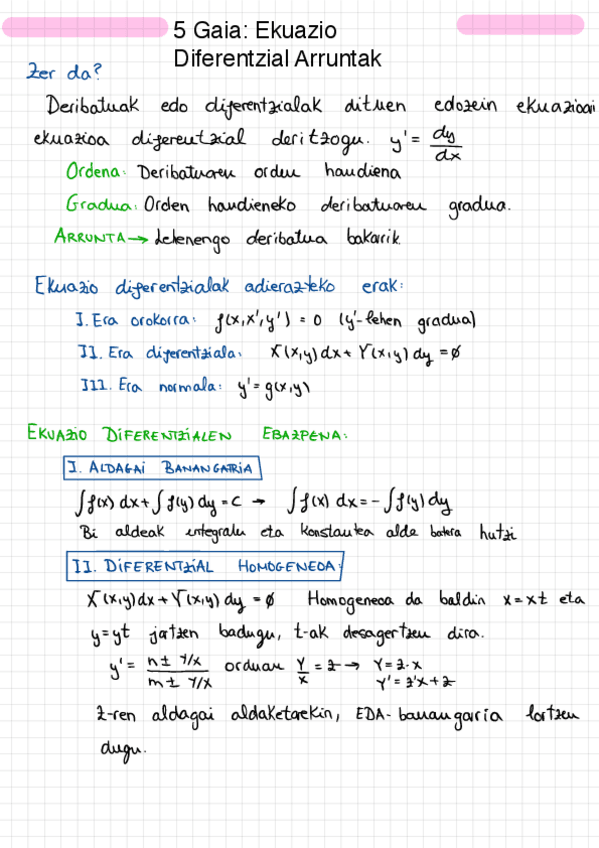 5 Gaia: Ekuazio
Diferentzial Arruntak
Zer da?
Deribatuak edo diferentzialak dituen edozein ekuazioari
ekuazioa diferentzial deritzogu. y' = dy/dx
Ordena: Deribatuaren orden handiena
Gradua: Orden handieneko deribatuaren gradua.
ARRUNTA → Lehenengo deribatua bakarrik
Ekuazio diferentzialak adierazteko erak:
I. Era orokorra: f(x,x',y') = 0 (y'-lehen gradua)
II. Era diferentziala: X(x,y) dx + Y(x,y) dy = ø
III. Era normala: y' = g(x,y)
EKUAZIO DIFERENTZIALEN EBAZPENA:
I. ALDAGAI BANANGARRIA
∫f(x) dx + ∫f(y) dy = C → ∫f(x) dx = -∫f(y) dy
Bi aldeak integralu eta konstantea alde batera hutzi
II. DIFERENTZIAL HOMOGENEOA:
X(x,y)dx + Y(x,y) dy = ø Homogeneoa da baldin x=xt eta
y=yt jartzen badugu, t-ak desagertzen dira.
y' = n ± y/x / m ± y/x orduan y/x = z → Y = z·x
Y' = z'x + z
z-ren aldagai aldaketarekin, EDA-banangarria lortzen
dugu.